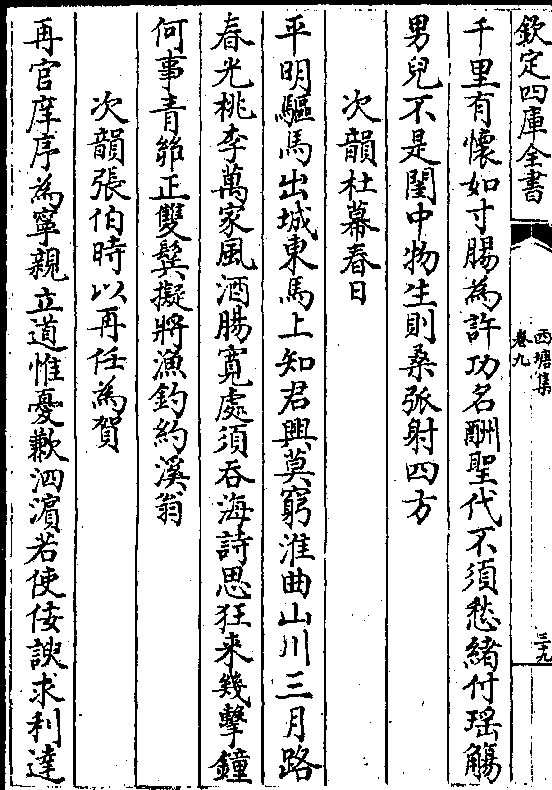 欽定四庫全書
西塘集
卷九
三十九
千里有懷如寸腸為許功名酬聖代不須愁緒付瑶觴
男兒不是閨中物生則桑弧射四方
次韻杜幕春日
平明驅馬出城東馬上知君興莫窮淮曲山川三月路
春光桃李萬家風酒腸寛處須吞海詩思狂来幾擊鐘
何事青郊正雙鬂擬將漁釣約溪翁
次韻張伯時以再任為賀
再官庠序為寧親立道惟憂歉泗濵若使佞諛求利達